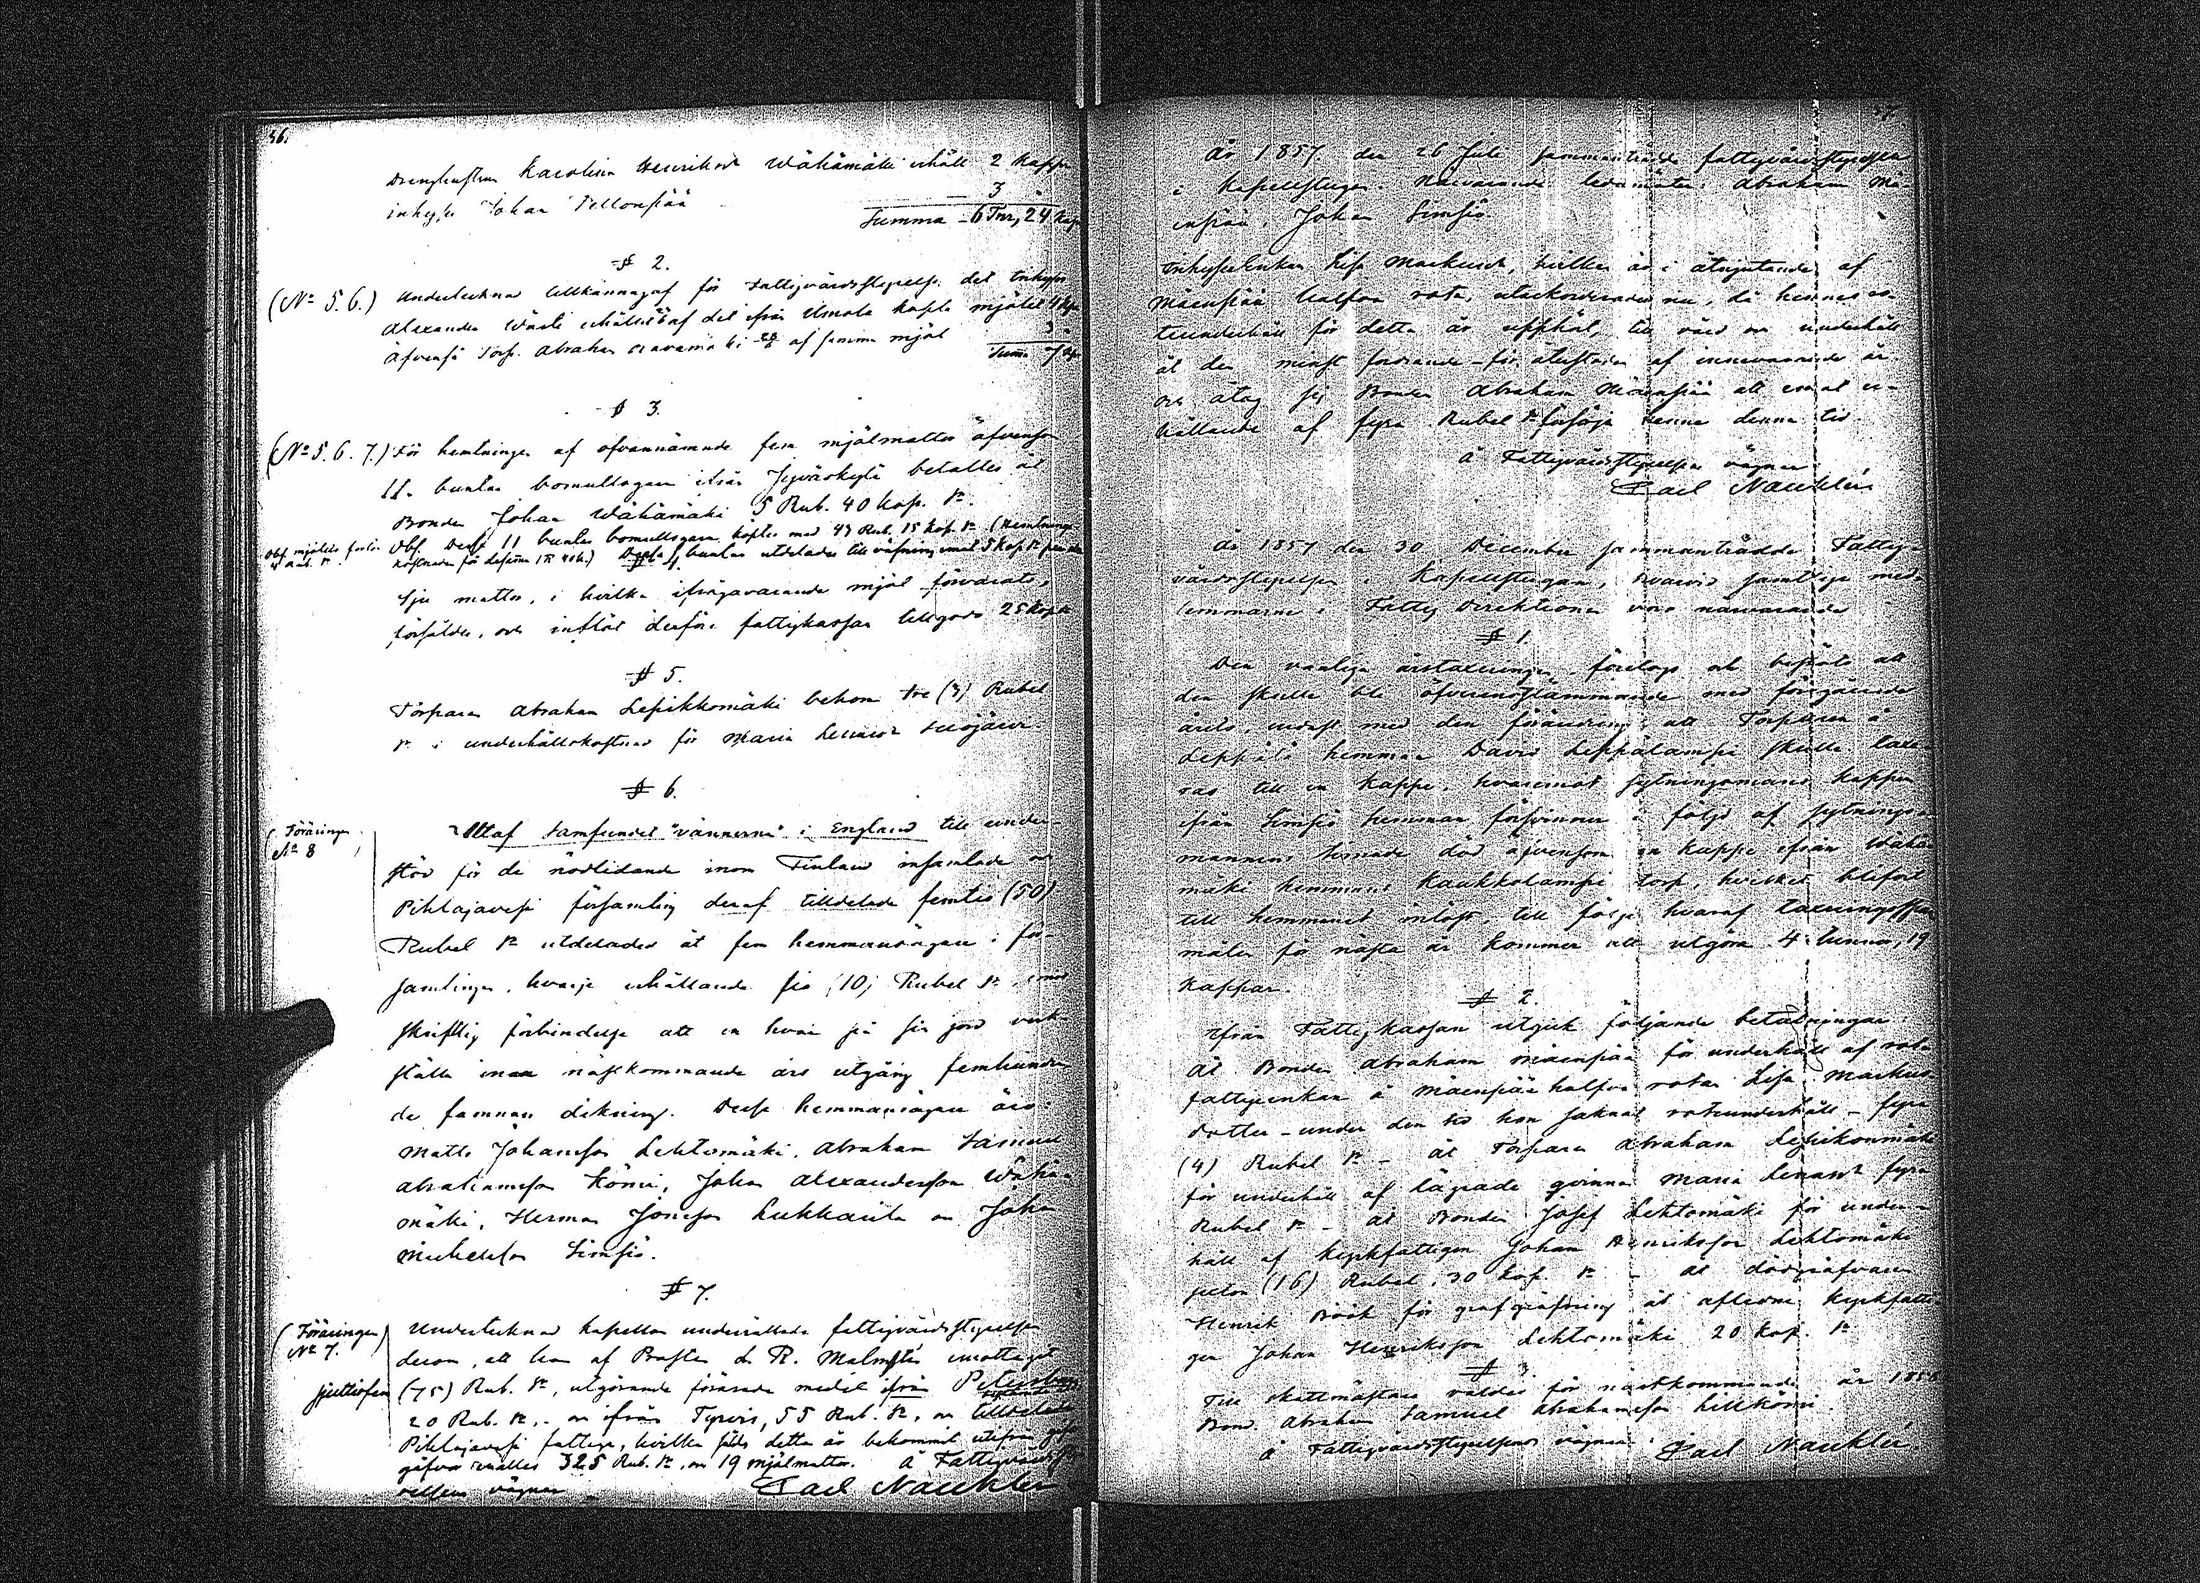 36.
Drenghustrun Karolina Henriksdr Wähämäki erhöll 2 kappar
inhyses Johan Pellonpää 3 "
Summa 6 Tnr, 24 kap
§ 2.
(No 5. 6.) Undertecknad tillkännagaf för Fattigvårdsstyrelsen det Inhyses
Alexander erhållit af det ifrån komna mjölet 4 kpr
Äfvenså Torp. Abraham af samma mjöl 3 "
Summa 7 kpr
§ 3.
(No 5. 6. 7.) För hemtningen af ofvannämnde fem mjölmattor äfvensom
11 buntar bomullsgarn ifrån Jyväskylä betaltes åt
Bonden Johan Wähämäki 5 Rub. 40 kop. Sr.
Obs. Dessa 11 buntar bomullsgarn köptes med 43 Rub. 15 kop. Sr (hemtnings-
kostnaden för desamma 1 R 40 k.) Dessa 11 buntar utdelades till väfning emot 5 kop Sr
Obs. mjölets
Sju mattor, i hvilka ifrågavarande mjöl förvarats,
försåldes, och inflöt derföre fattigkassan tillgodo 25 kop Sr
§ 5.
Torparen Abraham Lepikkomäki bekom tre (3) Rubel
Sr i underhållskostnad för Maria Lenasdr
§ 6.
(Föräringen
No 8)
Utaf samfundet "vännerna" i England till under-
stöd för de nödlidande inom Finland insamlade och
Pihlajavesi församling deraf tilldelade femtio (50)
Rubel Sr utdelades åt fem hemmansägare i för-
samlingen, hvarje erhållande tio (10) Rubel Sr, emot
skriftlig förbindelse att en hvar på sin jord verk-
ställa innan nästkommande års utgång femhundra-
de famnar dikning. Desse hemmansägare äro:
Matts Johansson Lehtomäki, Abraham Samuel
Abrahamsson Köni, Johan Alexandersson Wähä-
mäki, Herman Josefsson Lukkarila och Johan
Michelsson Simsiö.
§ 7.
(Föräringen
No 7.)
Undertecknad kapellan underrättade fattigvårdsstyrelsen
derom, att han af Prosten L. R. Malmstén emottagit
sjuttiofem (75) Rub. Sr, utgörande förärade medel ifrån Petersburg
20 Rub. Sr, och ifrån Tyrvis, 55 Rub. Sr, och tilldelade
Pihlajavesi fattige, hvilka sålunda detta år bekommit utifrån
gåfvor emellan 325 Rub. Sr, och 19 mjölmattor. Å Fattigvårdssty-
relsens vägnar
Carl Nauklér
37.
År 1857 den 26 Juli sammanträdde fattigvårdsstyrelsen
i Kapellstugan. Närvarande ledamöter: Abraham Mä-
enpää, Johan Simsiö.
Inhysesenkan Lisa Markusdr, hvilken är i åtnjutande af
Mäenpää halfva rota, utackorderades nu, då hennes ro-
teunderhåll för detta år upphört, till vård och underhåll
åt den minst fordrande för återstoden af innevarande år.
och åtog sig Bonden Abraham Mäenpää att emot er-
hållande af fyra Rubel Sr försörja henne denna tid.
Å Fattigvårdsstyrelsens vägnar
Carl Nauklér
År 1857 den 30 December sammanträdde Fattig-
vårdsstyrelsen i Kapellstugan, hvarvid samtlige med-
lemmarne i Fattig Direktionen voro närvarande
§ 1.
Den vanliga årstaxeringen företogs och beslöts att
den skulle bli öfverensstämmande med föregående
årets, endast med den förändring att Torparen å
Leppälä hemman David Leppälampi skulle taxe-
ras till en kappe, hvaremot sytningsmans kappen
ifrån Simsiö hemman försvinner i följd af sytnings-
mannens timade död äfvensom en kappe ifrån Wähä-
mäki hemmans Kaukkolampi torp, hvilket blifvit
till hemmanet inlöst, till följe hvaraf taxeringssum-
man för nästa år kommer att utgöra 4 tunnor, 19
kappar.
§ 2.
Ifrån Fattigkassan utgick följande betalningar:
Åt Bonden Abraham Mäenpää för underhåll af rote
fattigenkan å Mäenpää halfva rotan Lisa Markus-
dotter under den tid hon saknat roteunderhåll – fyra
(4) Rubel Sr – åt Torparen Abraham Lepikonmäki
för underhåll af lägrade qvinnan Maria Lenasdr fyra
Rubel Sr – åt Bonden Josef Lehtomäki för under-
håll af kyrkfattigen Johan Henriksson Lehtomäki
sexton (16) Rubel, 30 kop. Sr – åt dödgräfvaren
Henrik Böök för grafgräfning åt aflidne kyrkfatti-
gen Johan Henriksson Lehtomäki 20 kop. Sr
§ 3
Till skattmästare valdes för nästkommande år 1858
Bond. Abraham Samuel Abrahamsson Lillköni.
Å Fattigvårdsstyrelsens vägnar Carl Nauklér